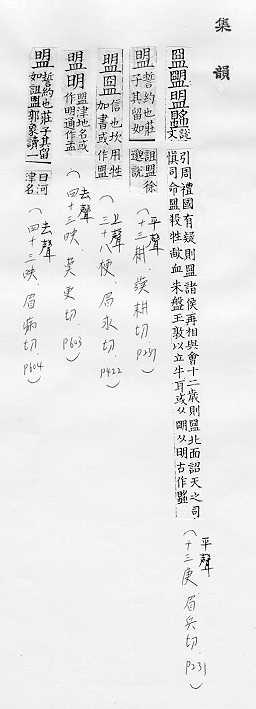 集韻
盟 說文
引周禮國有疑則盟諸侯再相與會十二歲則盟北面詔天之司慎司命盟殺牲歃血朱盤玉敦以立牛耳或从明从明古作盟
(平聲 十三庚 眉兵切 P231)
盟 誓約也莊子其留如詛盟徐邈說
(平聲 十三耕 謨耕切 P237)
盟 信也坎用牲加書或作盟
(上聲 三十八梗 眉永切 P422)
盟明 盟津地名或作明通作孟
(去聲 四十三映 莫更切 P603)
盟 誓約也莊子其留如詛盟郭象讀一曰河津名
(去聲 四十三映 眉病切 P604)